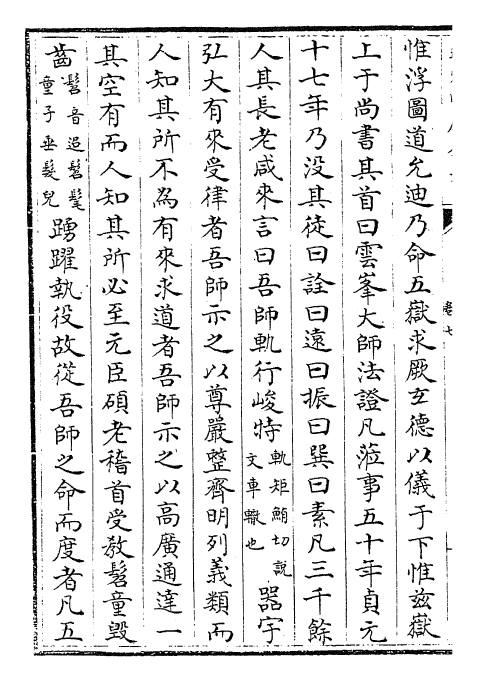 惟浮圖道允迪乃命五嶽求厥玄德以儀于下惟茲嶽
上于尚書其首曰雲峯大師法證凡蒞事五十年貞元
十七年乃没其徒曰詮曰遠曰振曰巽曰素凡三千餘
人其長老咸來言曰吾師軌行峻特軌矩鮪切説文車轍也器宇
弘大有來受律者吾師示之以尊嚴整齊明列義類而
人知其所不為有來求道者吾師示之以高廣通達一
其空有而人知其所必至元臣碩老稽首受教髫童毁
齒髫音迢髫髦童子垂髮兒踴躍執役故從吾師之命而度者凡五
卷七